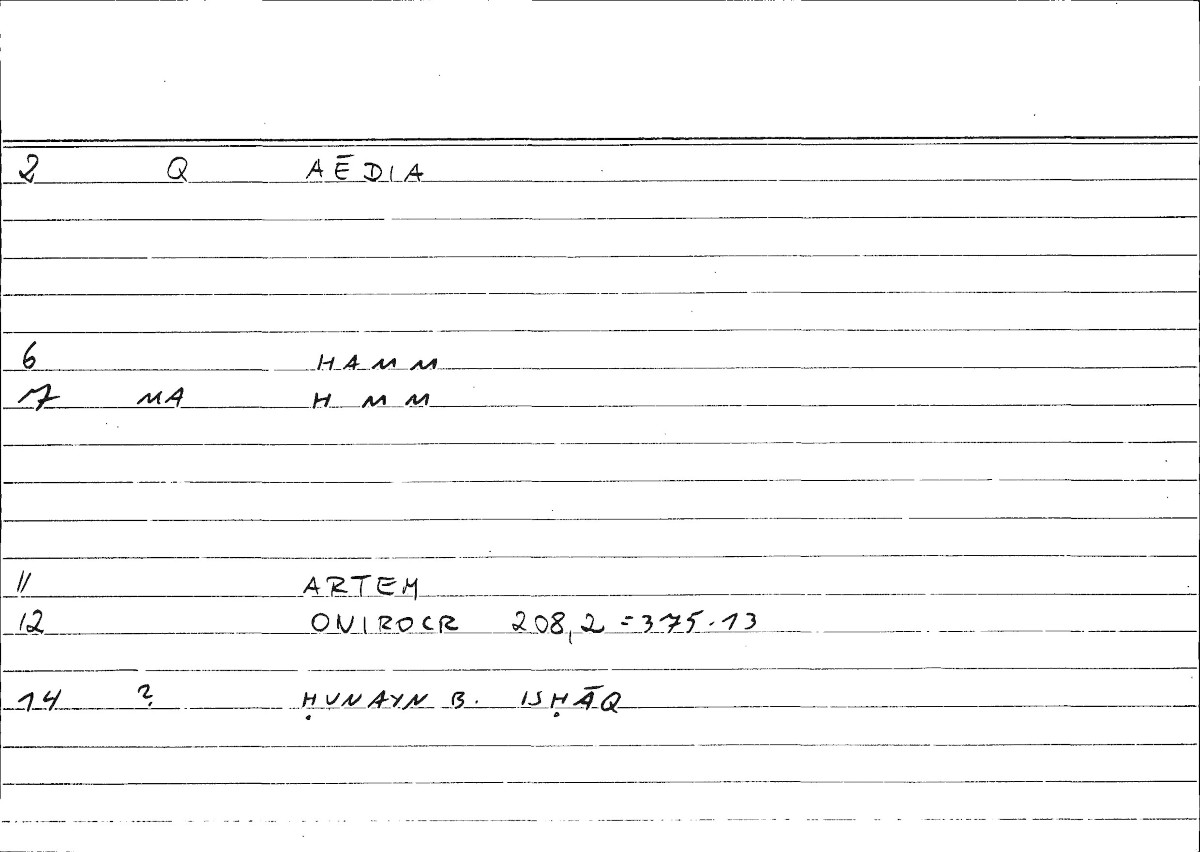 2 Q AĒDIA
6 HAMM
7 MA H MM
11 ARTEM
12 ONIROCR 208,2 = 375.13
14 ? ḤUNAYN B. ISḤĀQ